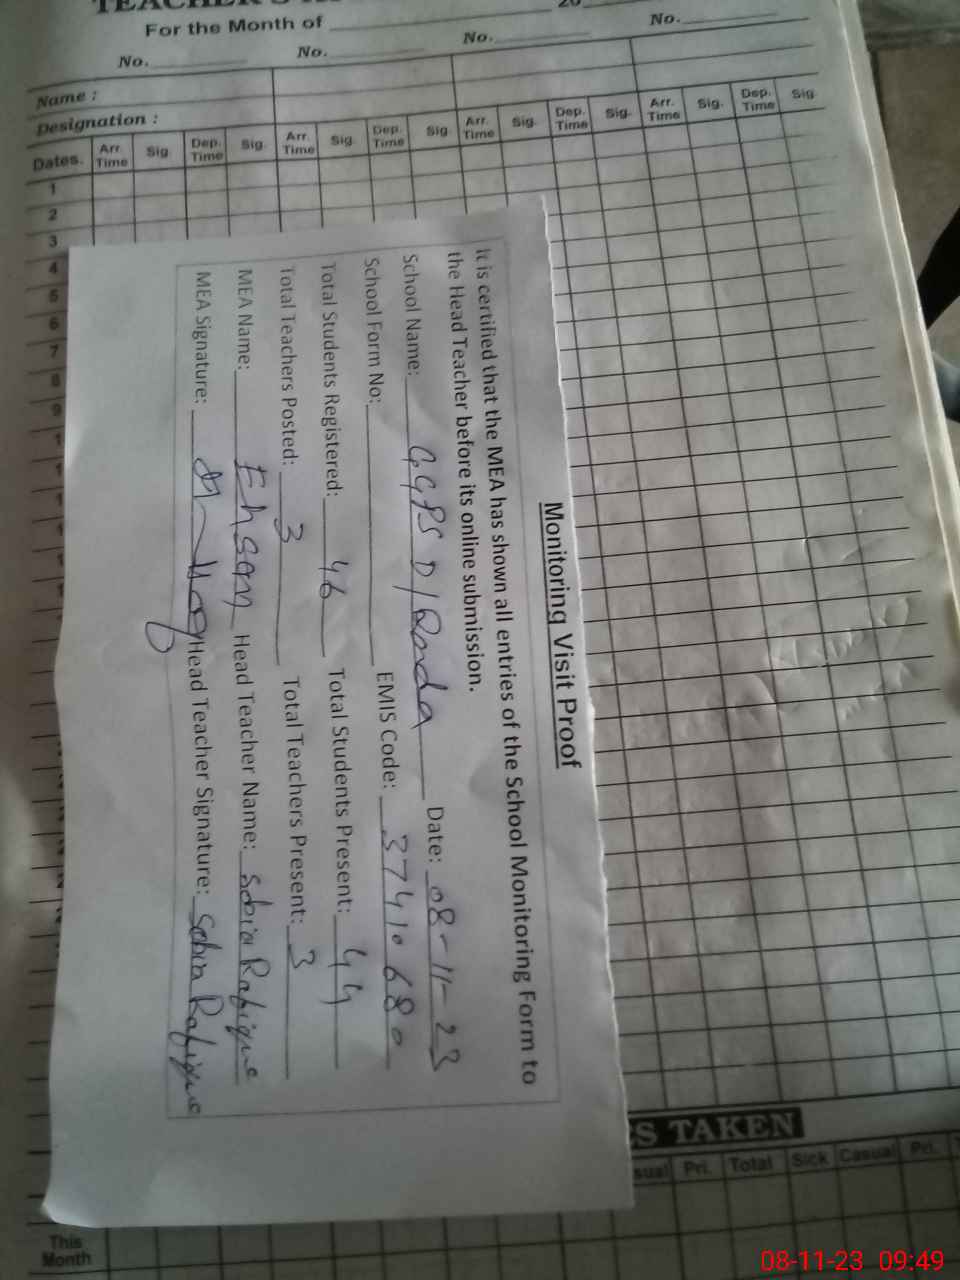 For the Month of
20
No. No. No. No.
Name :
Designation :
Dates. Arr. Time Sig. Dep. Time Sig. Arr. Time Sig. Dep. Time Sig. Arr. Time Sig. Dep. Time Sig. Arr. Time Sig. Dep. Time Sig.
1
2
3
4
5
6
7
8
9
Monitoring Visit Proof
It is certified that the MEA has shown all entries of the School Monitoring Form to
the Head Teacher before its online submission.
School Name: GGPS D/ Date: 08-11-23
School Form No: EMIS Code: 37410680
Total Students Registered: 46 Total Students Present: 44
Total Teachers Posted: 3 Total Teachers Present: 3
MEA Name: Ehsan Head Teacher Name: Sobia Rafique
MEA Signature: Head Teacher Signature: Sobia Rafique
TAKEN
Pri. Total Sick Casual Pri.
This Month
08-11-23 09:49